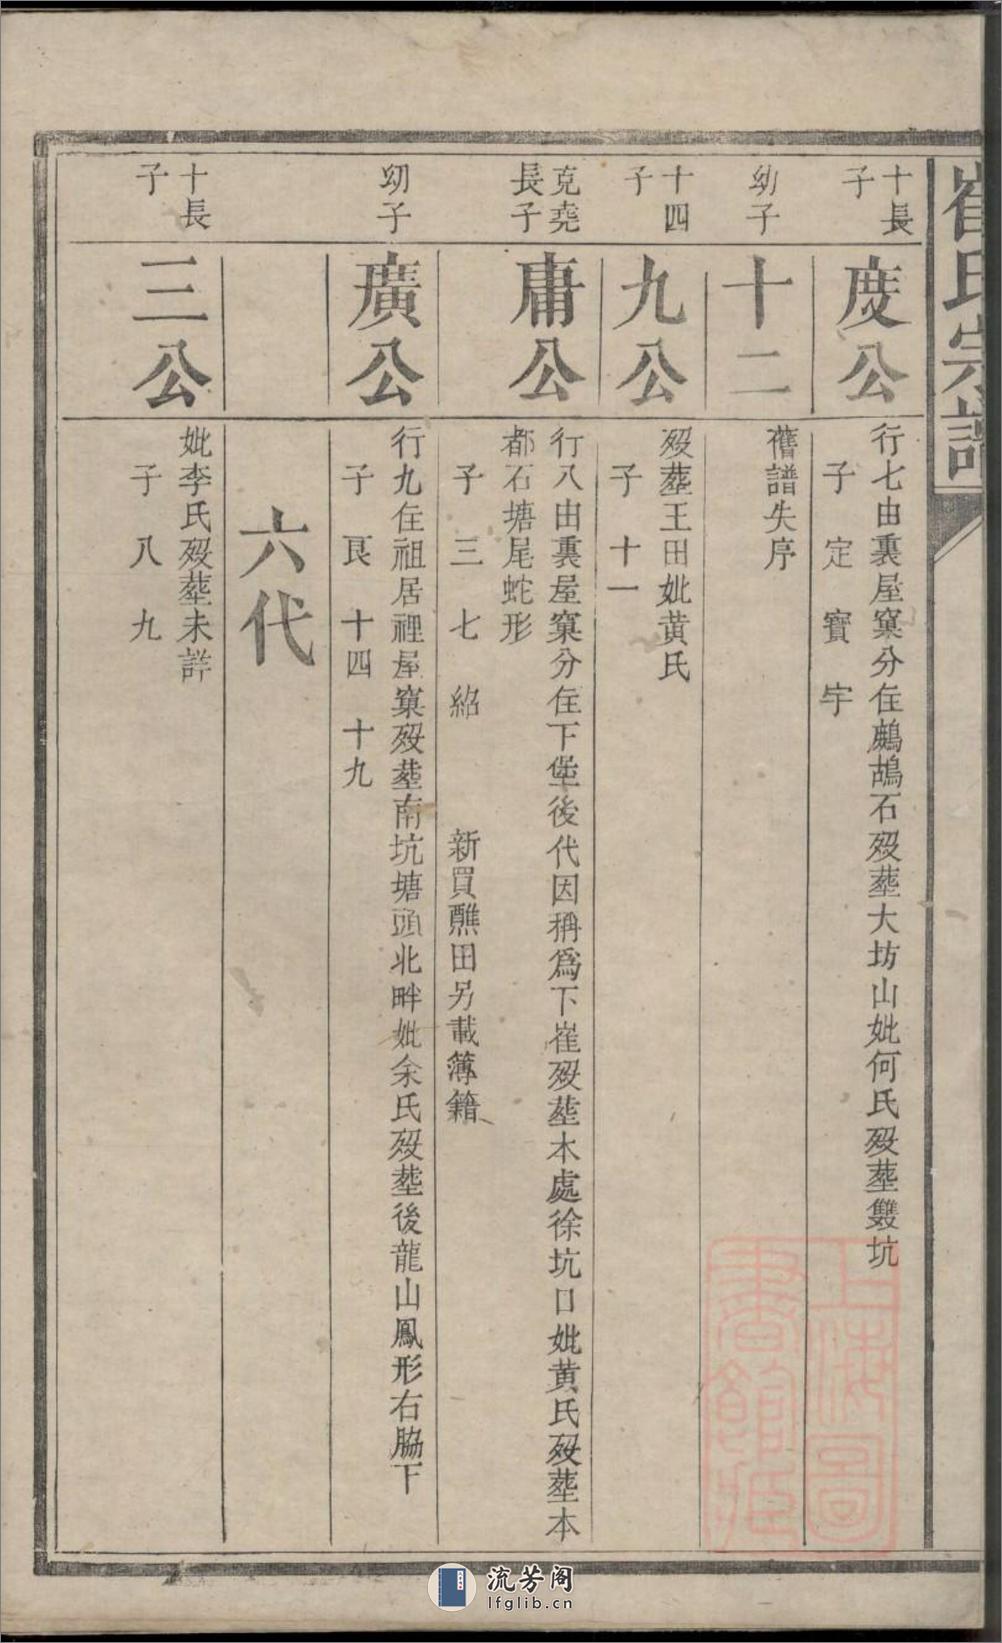 崔氏宗譜
十長
子
度公
行七由裏屋窠分住鷓鴣石歿塟大坊山妣何氏歿塟雙坑
子 定 寶 宇
幼子
十二
舊譜失序
十四
子
九公
歿塟王田妣黄氏
子 十一
克堯
長子
庸公
行八由裏屋窠分住下堡後代因稱爲下崔歿塟木處徐坑口妣黄氏歿塟本
都石塘尾蛇形
子 三 七 紹 新買醮田另載簿籍
幼子
廣公
行九住祖居裡屋窠歿塟南坑塘頭北畔妣余氏歿塟後龍山鳳形右脇下
子 艮 十四 十九
六代
十長
子
三公
妣李氏歿塟未詳
子 八 九
上海圖
書館藏
流芳阁
lfglib.cn